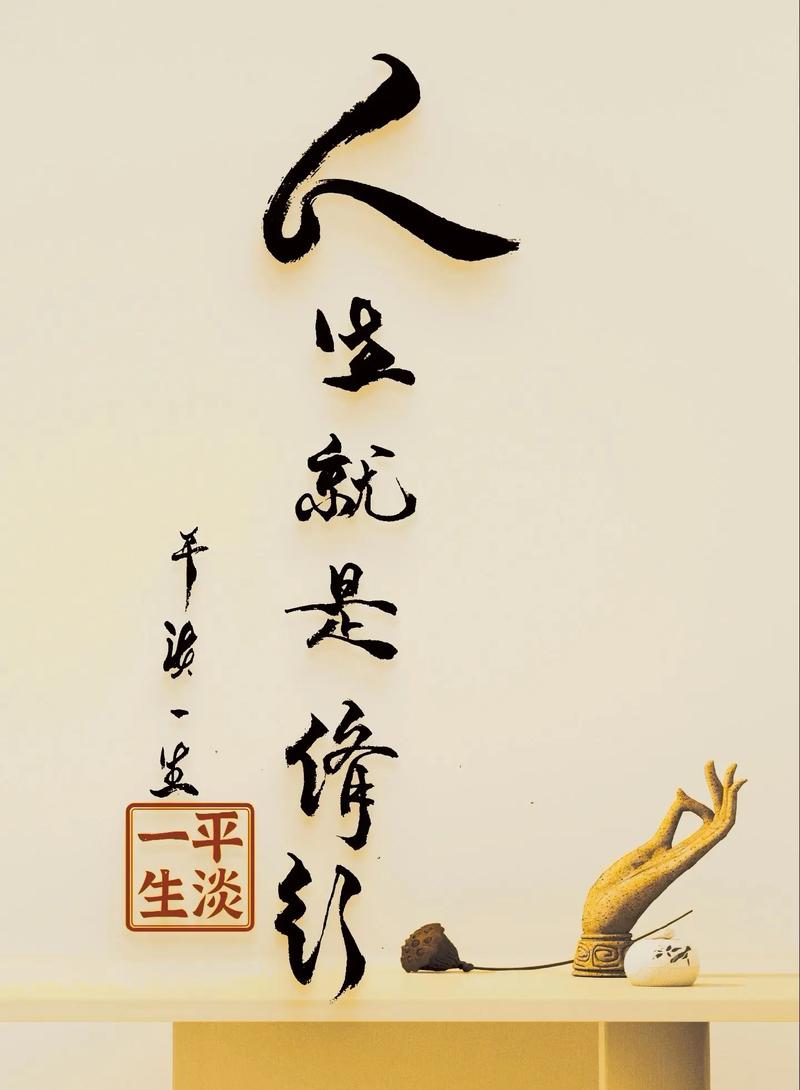 人生就是修行
平淡一生
平淡
一生